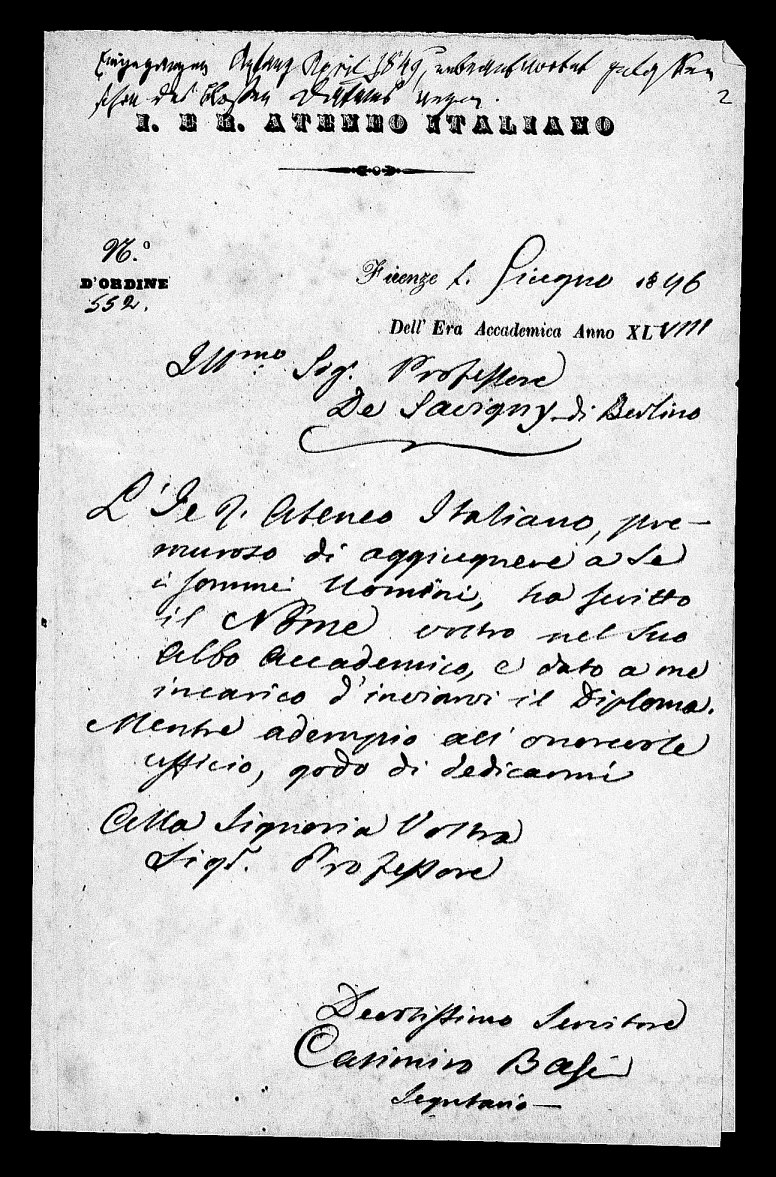 Eingegangen Anfang April 1849, unbeantwortet
des Datums wegen.
2
I. E R. ATENEO ITALIANO
N.º
D'ORDINE
552.
Firenze 1. Giugno 1846
Dell' Era Accademica Anno XLVIII
Illmo Sig. Professore
De Savigny di Berlino
L'I e R. Ateneo Italiano, pre-
muroso di aggiugnere a Se
i sommi Uomini, ha scritto
il Nome vostro nel suo
Albo Accademico, e dato a me
incarico d'inviarvi il Diploma.
Mentre adempio all' onorevole
ufficio, godo di dedicarmi
Alla Signoria Vostra
Sigr. Professore
Devotissimo Servitore
Casimiro Basi
Segretario —